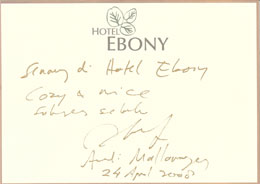 HOTEL
EBONY
Senang di Hotel Ebony
Cozy & nice
Andi Mallarangeng
24 April 2008